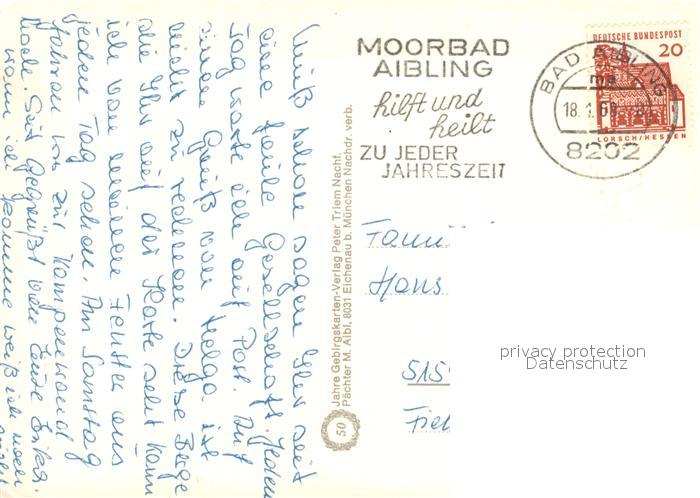 Muß schon sagen Ihr seit
eine faule Gesellschaft. Jeden
Tag warte ich auf Post. Auf
einen Gruß von Helga ist
nicht zu rechnen. Diese Berge
die Ihr auf der Karte seht kann
ich von meinem Fenster aus
jeden Tag sehen. Am Samstag
fahren wir zur Kampenwand
Seit gegrüßt von Eurer
wann ich komme weiß ich noch
50 Jahre Gebirgskarten-Verlag Peter Triem Nachf.
Pächter M. Aibl, 8031 Eichenau b. München Nachdr. verb.
MOORBAD
AIBLING
hilft und
heilt
ZU JEDER
JAHRESZEIT
BAD AIBLING
ma
18.1.
8202
DEUTSCHE BUNDESPOST
20
LORSCH/HESSEN
Fami
Hans
515
privacy protection
Datenschutz